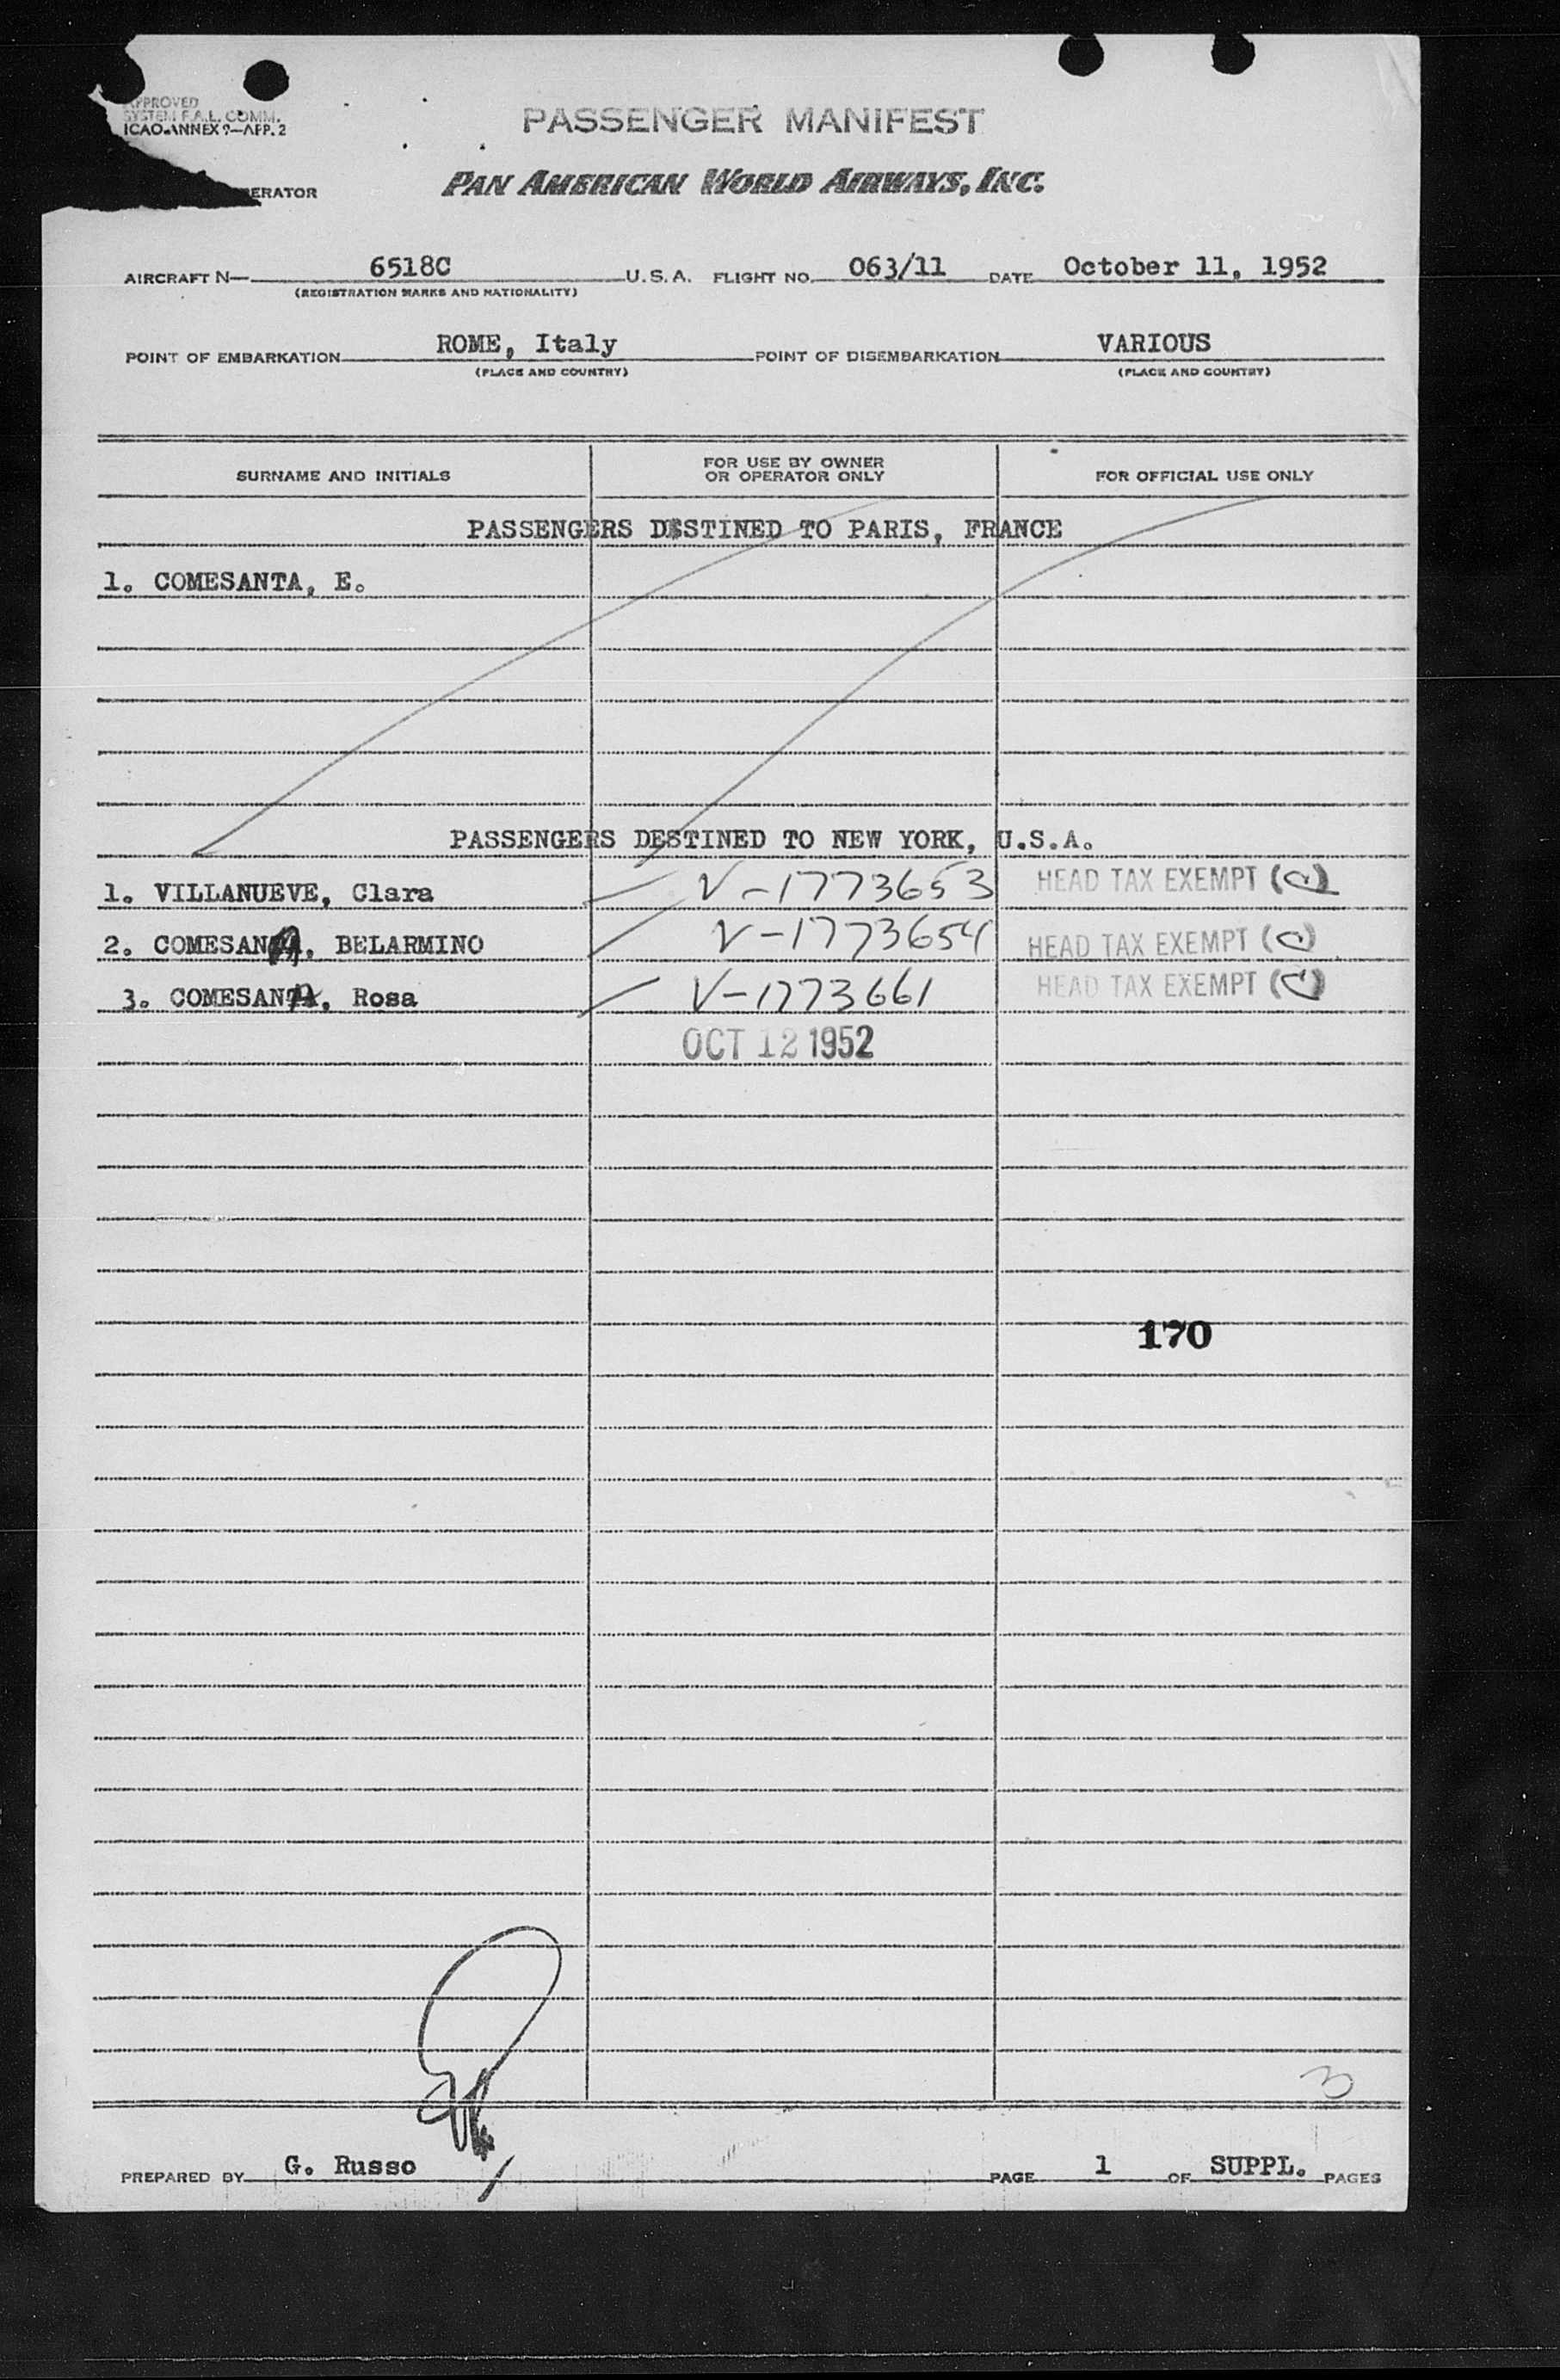 APPROVED
SYSTEM F.A.L. COMM.
ICAO-ANNEX 9—APP. 2
PASSENGER MANIFEST
PAN AMERICAN WORLD AIRWAYS, INC.
AIRCRAFT N— 6518C U.S.A. FLIGHT NO. 063/11 DATE October 11, 1952
(REGISTRATION MARKS AND NATIONALITY)
POINT OF EMBARKATION ROME, Italy POINT OF DISEMBARKATION VARIOUS
(PLACE AND COUNTRY) (PLACE AND COUNTRY)
SURNAME AND INITIALS FOR USE BY OWNER OR OPERATOR ONLY FOR OFFICIAL USE ONLY
PASSENGERS DESTINED TO PARIS, FRANCE
1. COMESANTA, E.
PASSENGERS DESTINED TO NEW YORK, U.S.A.
1. VILLANUEVE, Clara V-1773653 HEAD TAX EXEMPT (C)
2. COMESANA, BELARMINO V-1773654 HEAD TAX EXEMPT (C)
3. COMESANA, Rosa V-1773661 HEAD TAX EXEMPT (C)
OCT 12 1952
170
3
PREPARED BY G. Russo PAGE 1 OF SUPPL. PAGES